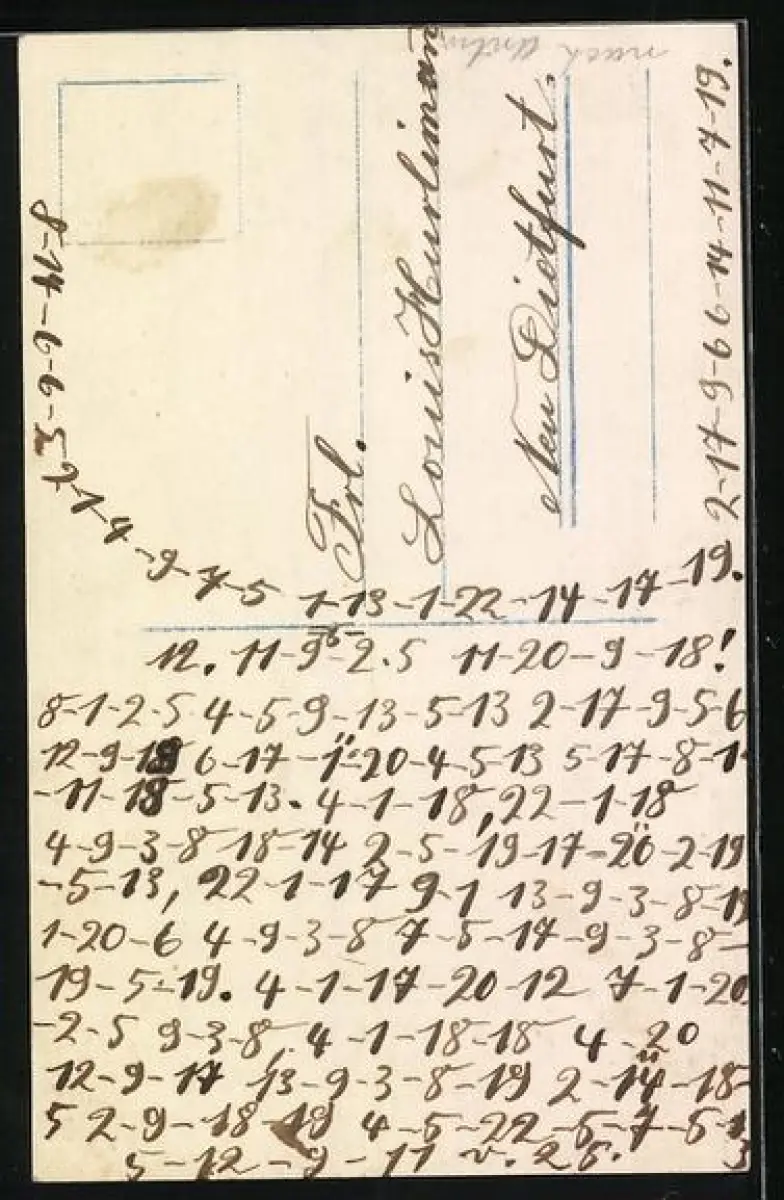 nach
Frl.
Louis Hurlimann
Neu Dietfurt.
12. 11-9-5-2.5 11-20-9-18!
8-1-2-5 4-5-9-13-5-13 2-17-9-5-6
12-9-19 6-17-1̈-20-4-5-13 5-17-8-1
-11-18-5-13. 4-1-18, 22-1-18
4-9-3-8 18-14 2-5-19-17-20̈-2-19
-5-13, 22-1-17 9-1 13-9-3-8-19
1-20-6 4-9-3-8 7-5-17-9-3-8-
19-5-19. 4-1-17-20-12 7-1-20
-2-5 9-3-8, 4-1-18-18 4-20
12-9-17 13-9-3-8-19 2-14̈-18-
5 2-9-18-19 4-5-22-5-7-5-1
5-12-9-11 v. 25.
8-14-6-6-5
1-4-9-7-5 1-13-1-22-14-17-19.
2-17-9-6 6-14-11-7-19.